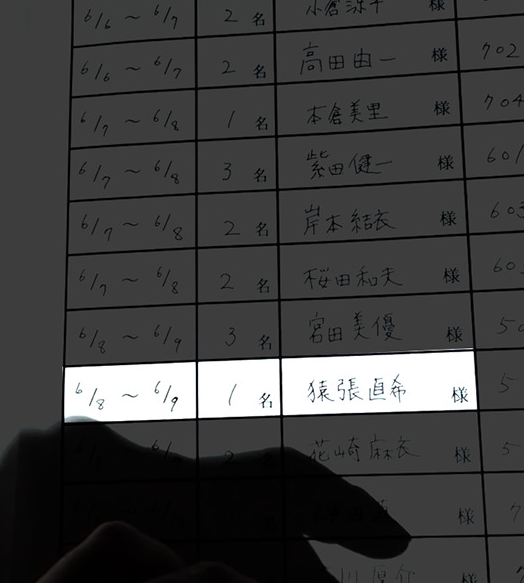 6/6 ～ 6/7 2名 様
6/6 ～ 6/7 2名 高田由一 様 702
6/7 ～ 6/8 1名 本倉美里 様 704
6/7 ～ 6/8 3名 紫田健一 様 601
6/7 ～ 6/8 2名 岸本結衣 様 603
6/7 ～ 6/8 2名 桜田和夫 様 60
6/8 ～ 6/9 3名 宮田美優 様 5
6/8 ～ 6/9 1名 猿張直希 様 5
2 花崎麻衣 様 5
様